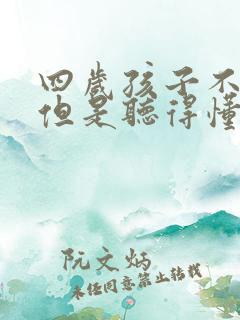 四歲孩子不
但是聽得懂
阮文炳
未经同意禁止转载